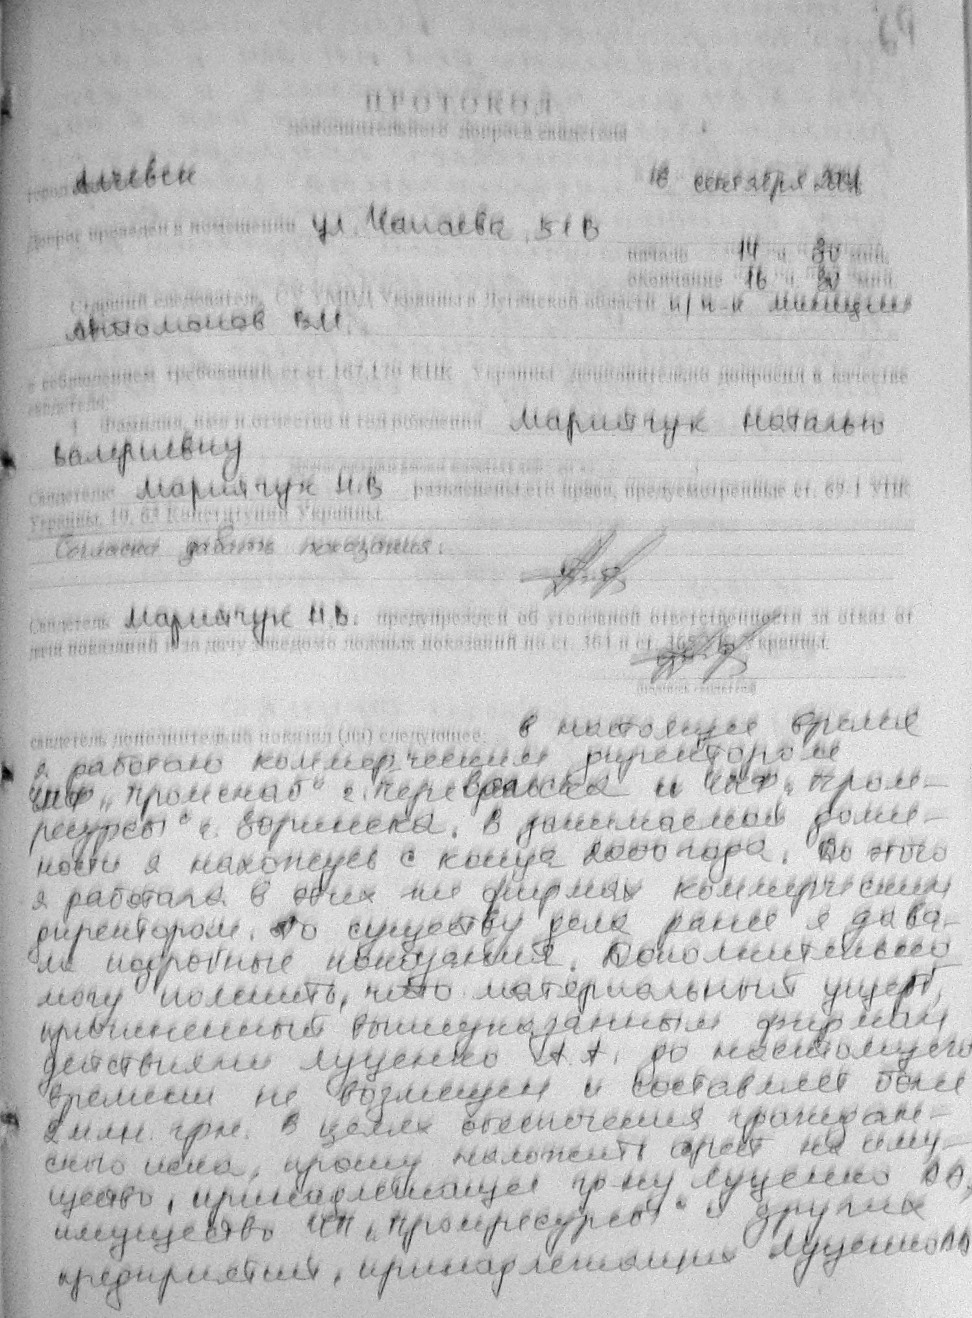 69
ПРОТОКОЛ
дополнительного допроса свидетеля
Алчевск
18 сентября
Допрос проведен в помещении ул. Чапаева, 51 В
начало 14 ч. 30 мин.
окончание 16 ч. мин.
Старший следователь СУ УМВД Украины в Луганской области п/п-к милиции
Антомонов В.М.
с соблюдением требований ст.ст.167,170 КПК Украины дополнительно допросил в качестве
свидетеля:
1. Фамилия, имя и отчество и год рождения Мариячук Наталью
Валериевну
Свидетелю Мариячук Н.В разъяснены его права, предусмотренные ст. 69-1 УПК
Украины, 10, 63 Конституции Украины.
Согласна давать показания.
Свидетель Мариячук Н.В. предупрежден об уголовной ответственности за отказ от
дачи показаний и за дачу заведомо ложных показаний по ст. 384 и ст. 385 Украины.
(подпись свидетеля)
свидетель дополнительно показал (ла) следующее: в настоящее время
я работаю коммерческим директором
ЧПФ „Промснаб“ г. Перевальска и ЧПФ „Пром-
ресурсы“ г. Зоринска. В занимаемой долж-
ности я нахожусь с конца 2000 года. До этого
я работала в этих же фирмах коммерческим
директором. По существу дела ранее я дава-
ла подробные показания. Дополнительно
могу пояснить, что материальный ущерб,
причиненный вышеуказанным фирмам
действиями Луценко А.А. до настоящего
времени не возмещен и составляет более
2 млн. грн. В целях обеспечения граждан-
ского иска, прошу наложить арест на иму-
щество, принадлежащее гр-ну Луценко
имущество ЧП „Промресурсы“ и других
предприятий, принадлежащих Луценко